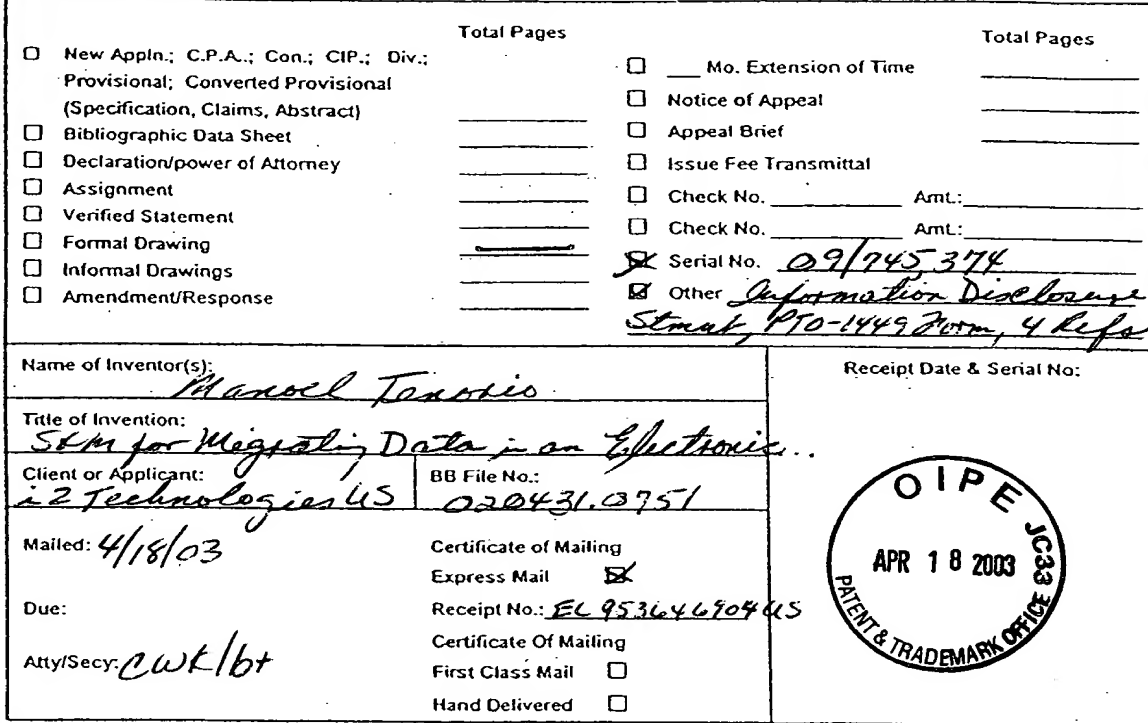 Total Pages
☐ New Appln.; C.P.A.; Con.; CIP.; Div.;
Provisional; Converted Provisional
(Specification, Claims, Abstract)
☐ Bibliographic Data Sheet
☐ Declaration/power of Attorney
☐ Assignment
☐ Verified Statement
☐ Formal Drawing
☐ Informal Drawings
☐ Amendment/Response
Total Pages
☐ ___ Mo. Extension of Time
☐ Notice of Appeal
☐ Appeal Brief
☐ Issue Fee Transmittal
☐ Check No. ________ Amt.: ________
☐ Check No. ________ Amt.: ________
☒ Serial No. 09/745,374
☒ Other Information Disclosure
Stmnt, PTO-1449 Form, 4 Refs
Name of Inventor(s):
Manoel Tenorio
Title of Invention:
S&M for Migrating Data in an Electronic..
Client or Applicant:
i2 Technologies US
BB File No.:
020431.0751
Receipt Date & Serial No:
Mailed: 4/18/03
Due:
Atty/Secy: CWK/bt
Certificate of Mailing
Express Mail ☒
Receipt No.: EL 953646904US
Certificate Of Mailing
First Class Mail ☐
Hand Delivered ☐
OIPE JC33
APR 18 2003
PATENT & TRADEMARK OFFICE